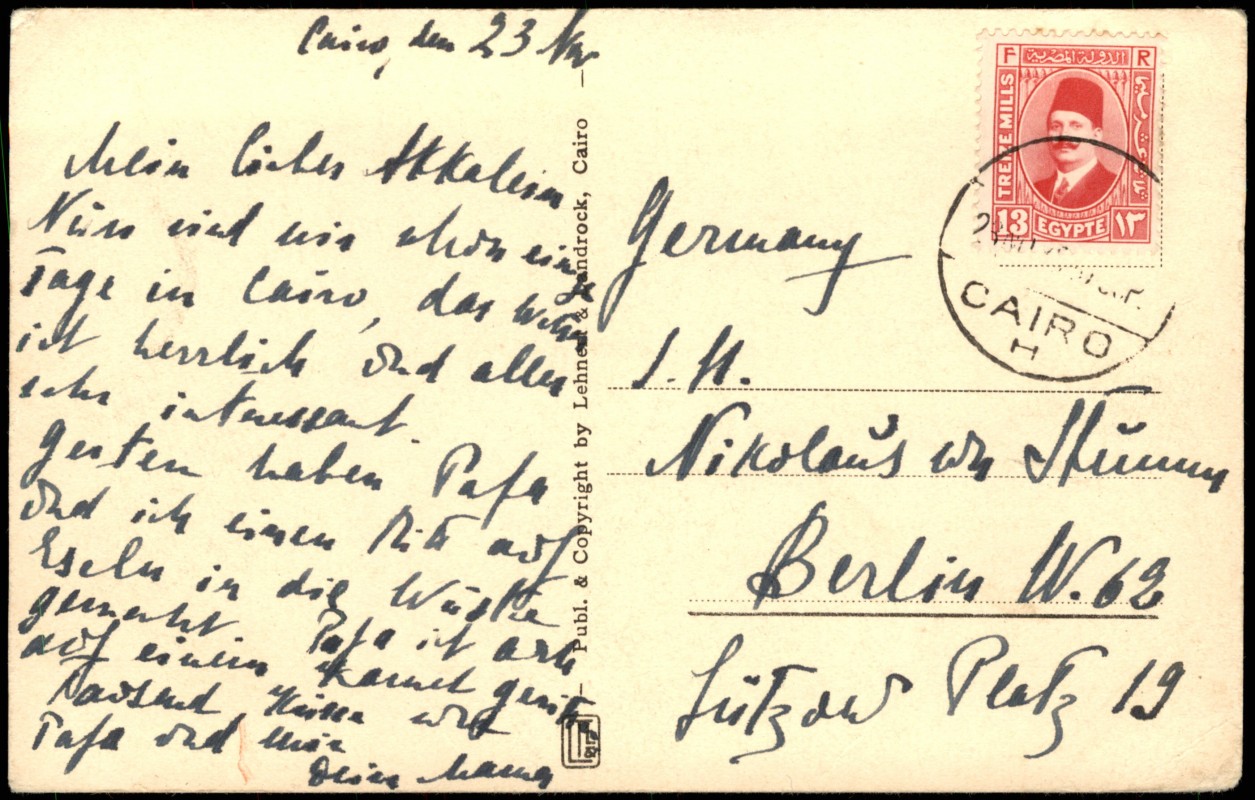 Cairo, den 23 Nov
Mein lieber
Nun sind wir schon einige
Tage in Cairo, das Wetter
ist herrlich und alles
sehr interessant.
Gestern haben Papa
und ich einen Ritt auf
Eseln in die Wüste
gemacht. Papa ist auch
auf einem Kamel geritten
Tausend Küsse von
Papa und
Deine Mama
Publ. & Copyright by Lehnert & Landrock, Cairo
F R
الدولة المصرية
TREIZE MILLS
13 EGYPTE ١٣
CAIRO
H
Germany
S. H.
Nikolaus von Stumm
Berlin W. 62
Lützow Platz 19